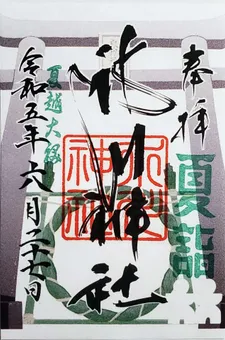 奉拝
夏詣
氷川神社
氷川神社
夏越大祓
令和五年六月二十七日